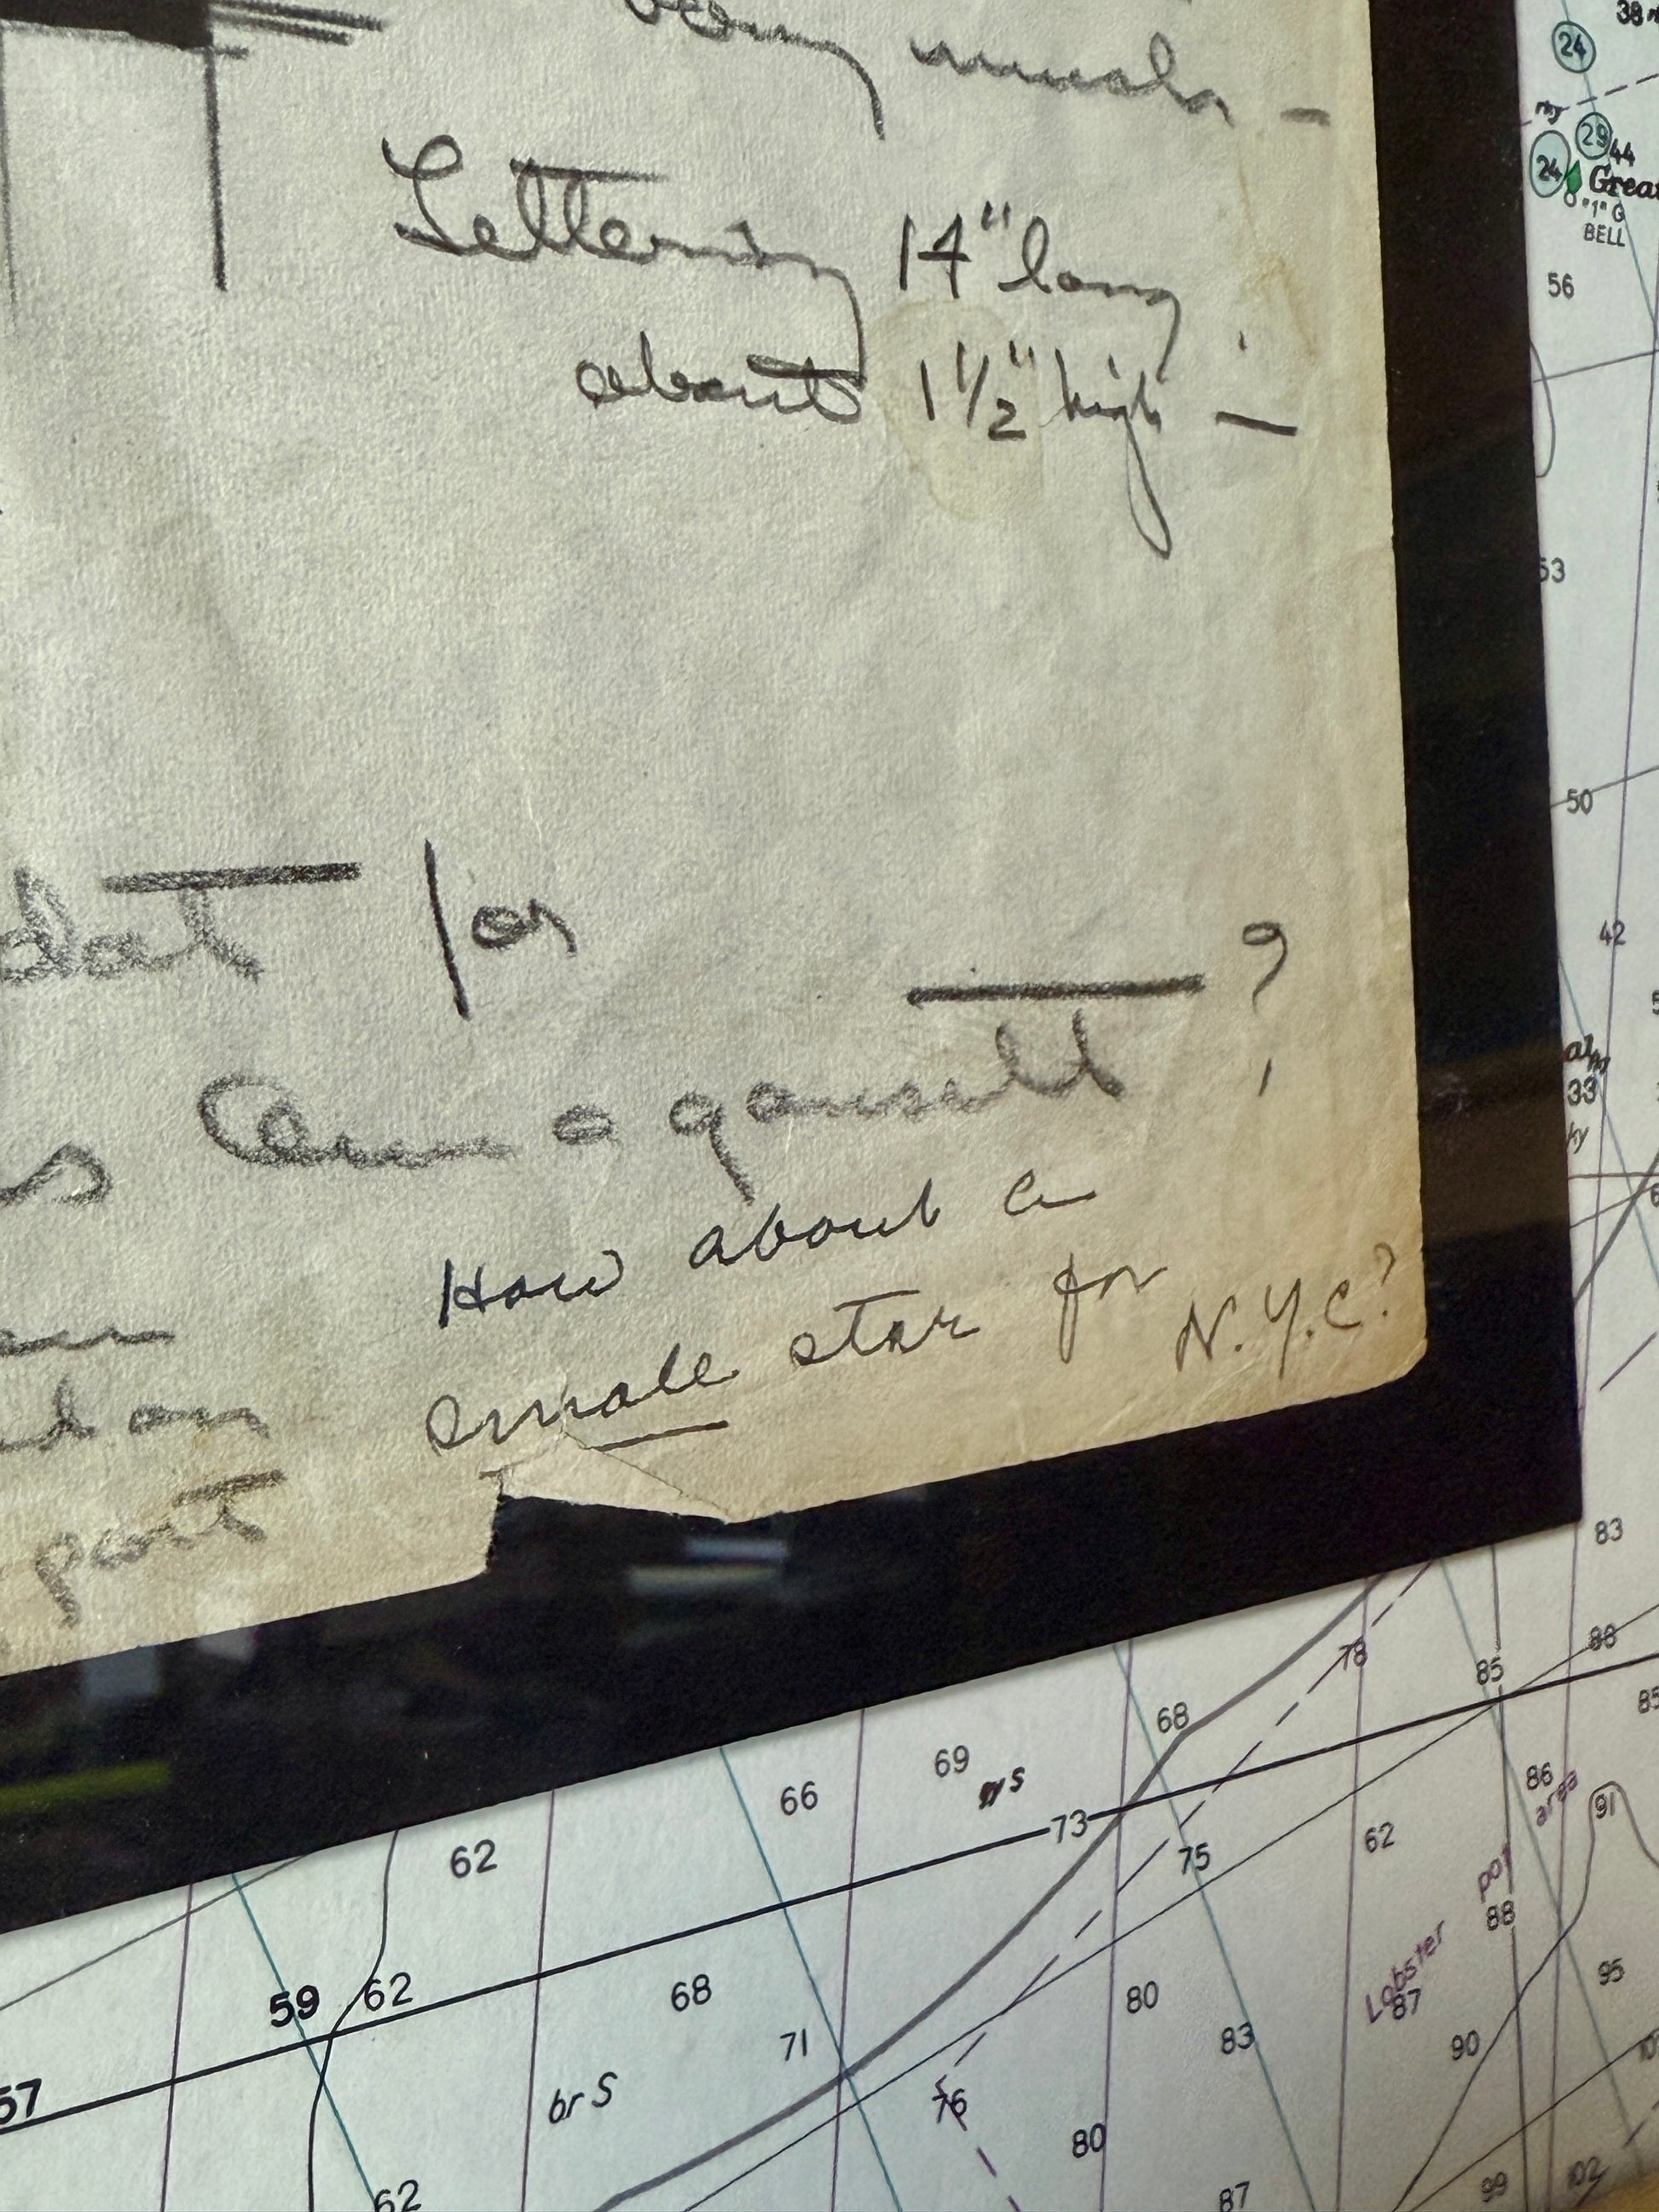 very much -
Lettering 14" long
about 1 1/2" high -
dot for
as Annagansett ?
How about a
small star for
N.Y.C?
part
38
24
rky
29
24
44
Great
"1" G
BELL
56
53
50
42
33
ky
83
78
88
85
85
68
69
66
73
86
area
91
62
62
75
pot
88
59
62
68
80
Lobster
87
95
71
83
90
57
br S
76
80
62
87
99
102